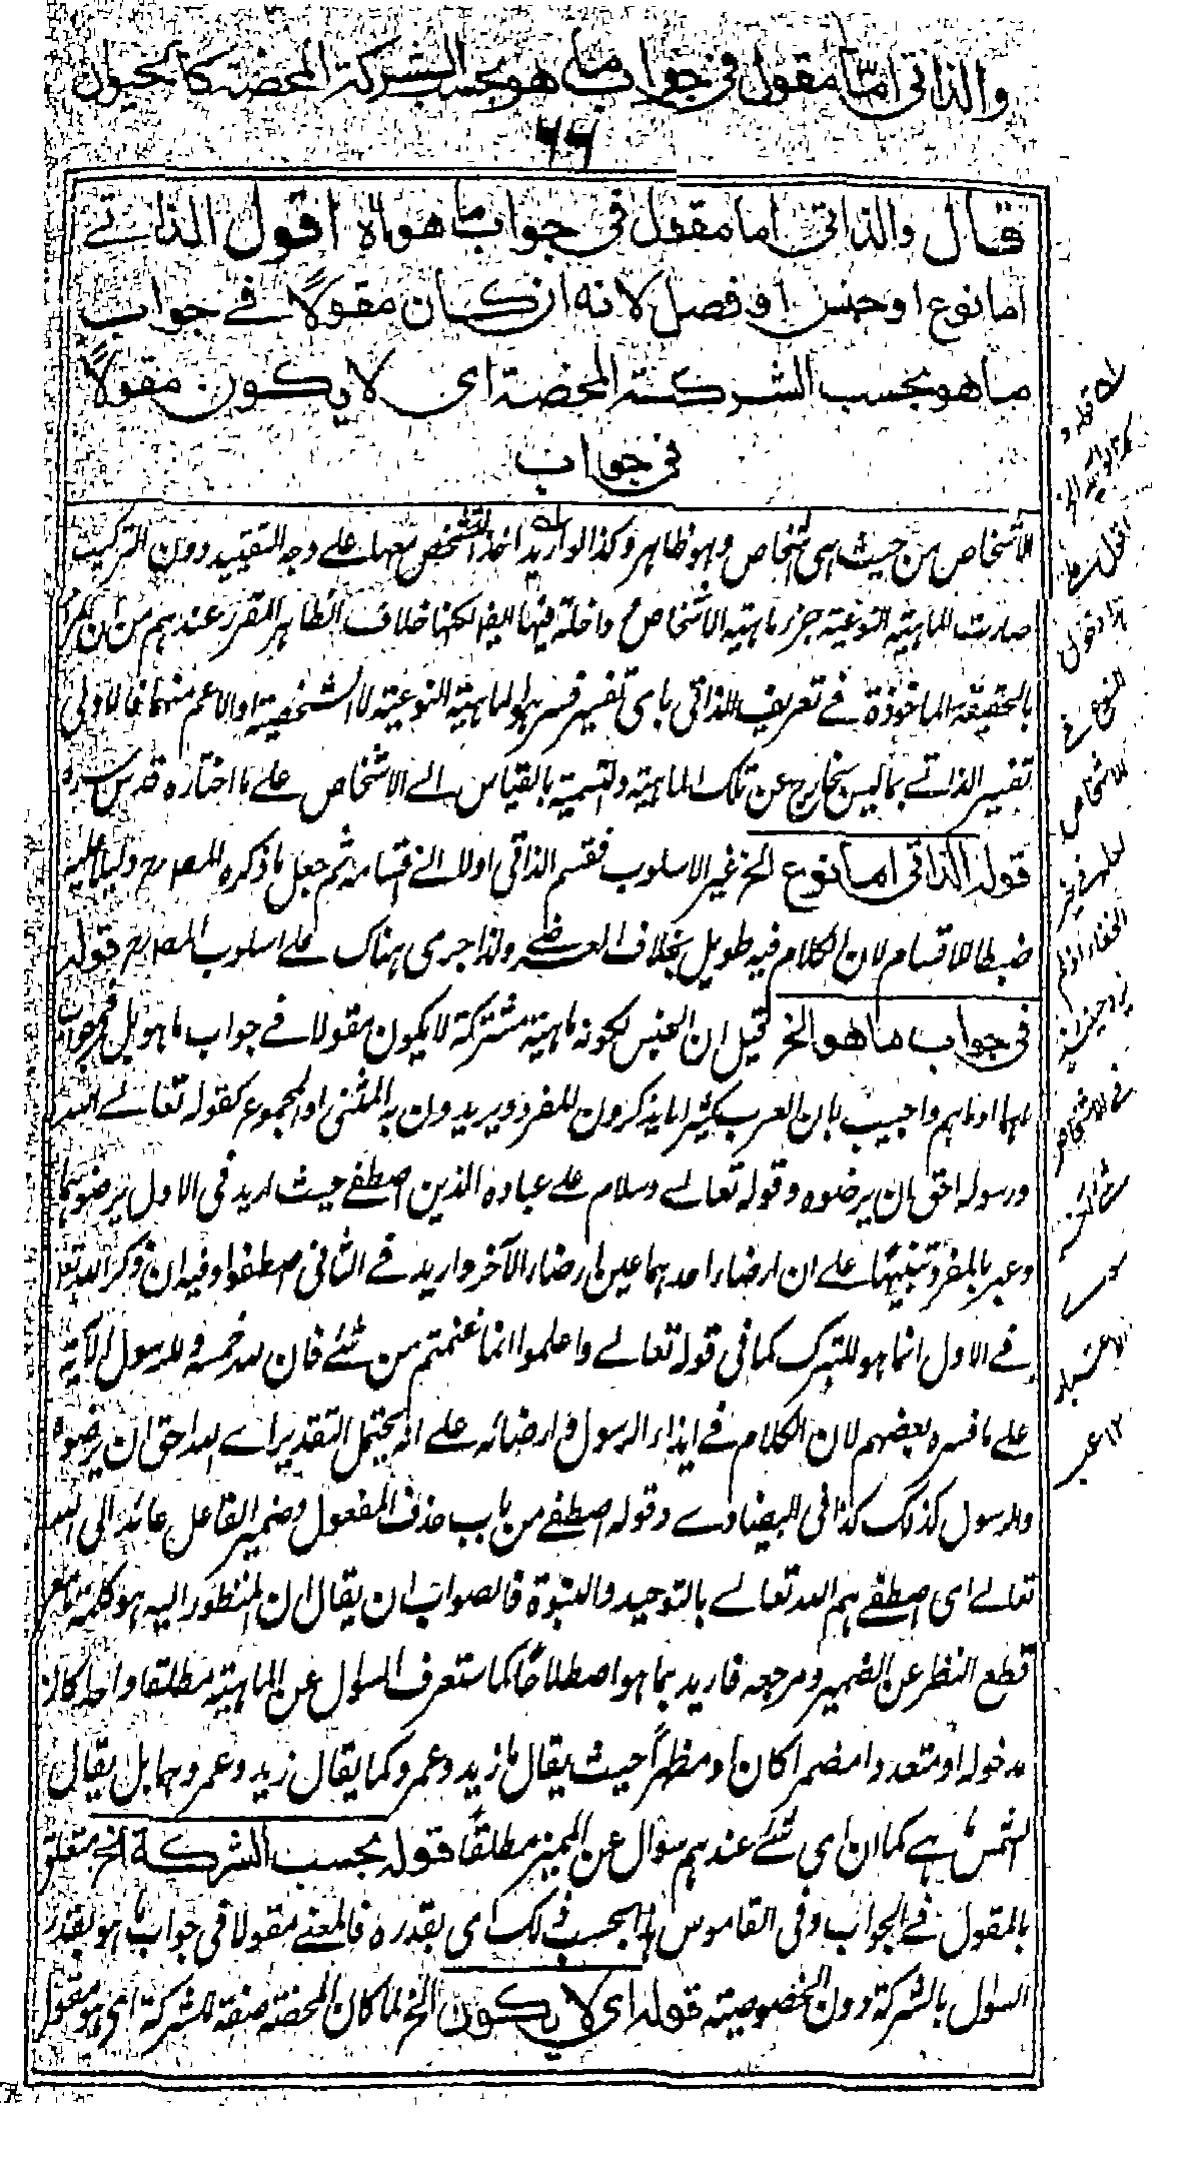 والذاتي اما مقول في جواب ما هو بحسب الشركة المحضة كالحيوان
٦٦
قال والذاتي اما مقول في جواب ما هو اه اقول الذاتے
اما نوع او جنس او فصل لانه ان كان مقولًا فے جواب
ما هو بحسب الشركة المحضة اى لا يكون مقولًا
فى جواب
الاشخاص من حيث هى اشخاص وهو ظاهر وكذا لو اريد اخذ التشخص معها علے وجه التقييد دون التركيب
صارت الماهية النوعية جزء ماهية الاشخاص داخلة فيها ايضا لكنها خلاف الظاهر المقرر عندهم من ان المراد
بالحقيقة الماخوذة فے تعريف الذاتى باى تفسير فسر هو الماهية النوعية لا الشخصية او الاعم منهما فالاولى
تفسير الذاتے بما ليس بخارج عن تلك الماهية والتسمية بالقياس الے الاشخاص علے ما اختاره قدس سره
قوله الذاتى اما نوع الخ غير الاسلوب فقسم الذاتى اولا الے اقسامه ثم جعل ما ذكره المصـ دليلا عليه
ضبطا للاقسام لان الكلام فيه طويل بخلاف العرضے ولذا جرى هناك علے اسلوب المصـ قوله
فى جواب ما هو الخ قيل ان الجنس لكونه ماهية مشتركة لا يكون مقولا فے جواب ما هو بل فى جواب
ماهما او ماهم واجيب بان العرب كثيرا ما يذكرون المفرد ويريدون به المثنى او المجموع كقوله تعالے الله
ورسوله احق ان يرضوه وقوله تعالے وسلام علے عباده الذين اصطفے حيث اريد فى الاول يرضوهما
وعبر بالمفرد تنبيهًا علے ان ارضاء احدهما عين ارضاء الآخر واريد فے الثانى اصطفوا وفيه ان ذكر الله تعـ
فے الاول انما هو للتبرك كما فى قوله تعالے واعلموا انما غنمتم من شئے فان لله خمسه وللرسول الآية
علے ما فسره بعضهم لان الكلام فے ايذاء الرسول وارضائه علے انه يحتمل التقدير اے الله احق ان يرضوه
والرسول كذلك كذا فى البيضاوے وقوله اصطفے من باب حذف المفعول وضمير الفاعل عائد الى الله
تعالے اى اصطفےهم الله تعالے بالتوحيد والنبوة فالصواب ان يقال ان المنظور اليه هو كلمة ما مع
قطع النظر عن الضمير ومرجعه فاريد بما هو اصطلاحًا كما ستعرف السوال عن الماهية مطلقا واحدا كان
مدخوله او متعددا مضمرا كان او مظهراً حيث يقال ما زيد وعمرو كما يقال زيد وعمرو ما هما بل يقال
الشمس ما هے كما ان اى شئے عندهم سؤال عن المميز مطلقًا قوله بحسب الشركة الخ متعلق
بالمقول فے الجواب وفى القاموس هذا بحسب ذلك اى بقدره فالمعنے مقولا فى جواب ما هو بقدر
السوال بالشركة دون الخصوصية قوله اى لا يكون الخ لما كان المحضة صفة للشركة اى هو مقول
اقول
النوع
الاشخاص
١٢ عبد